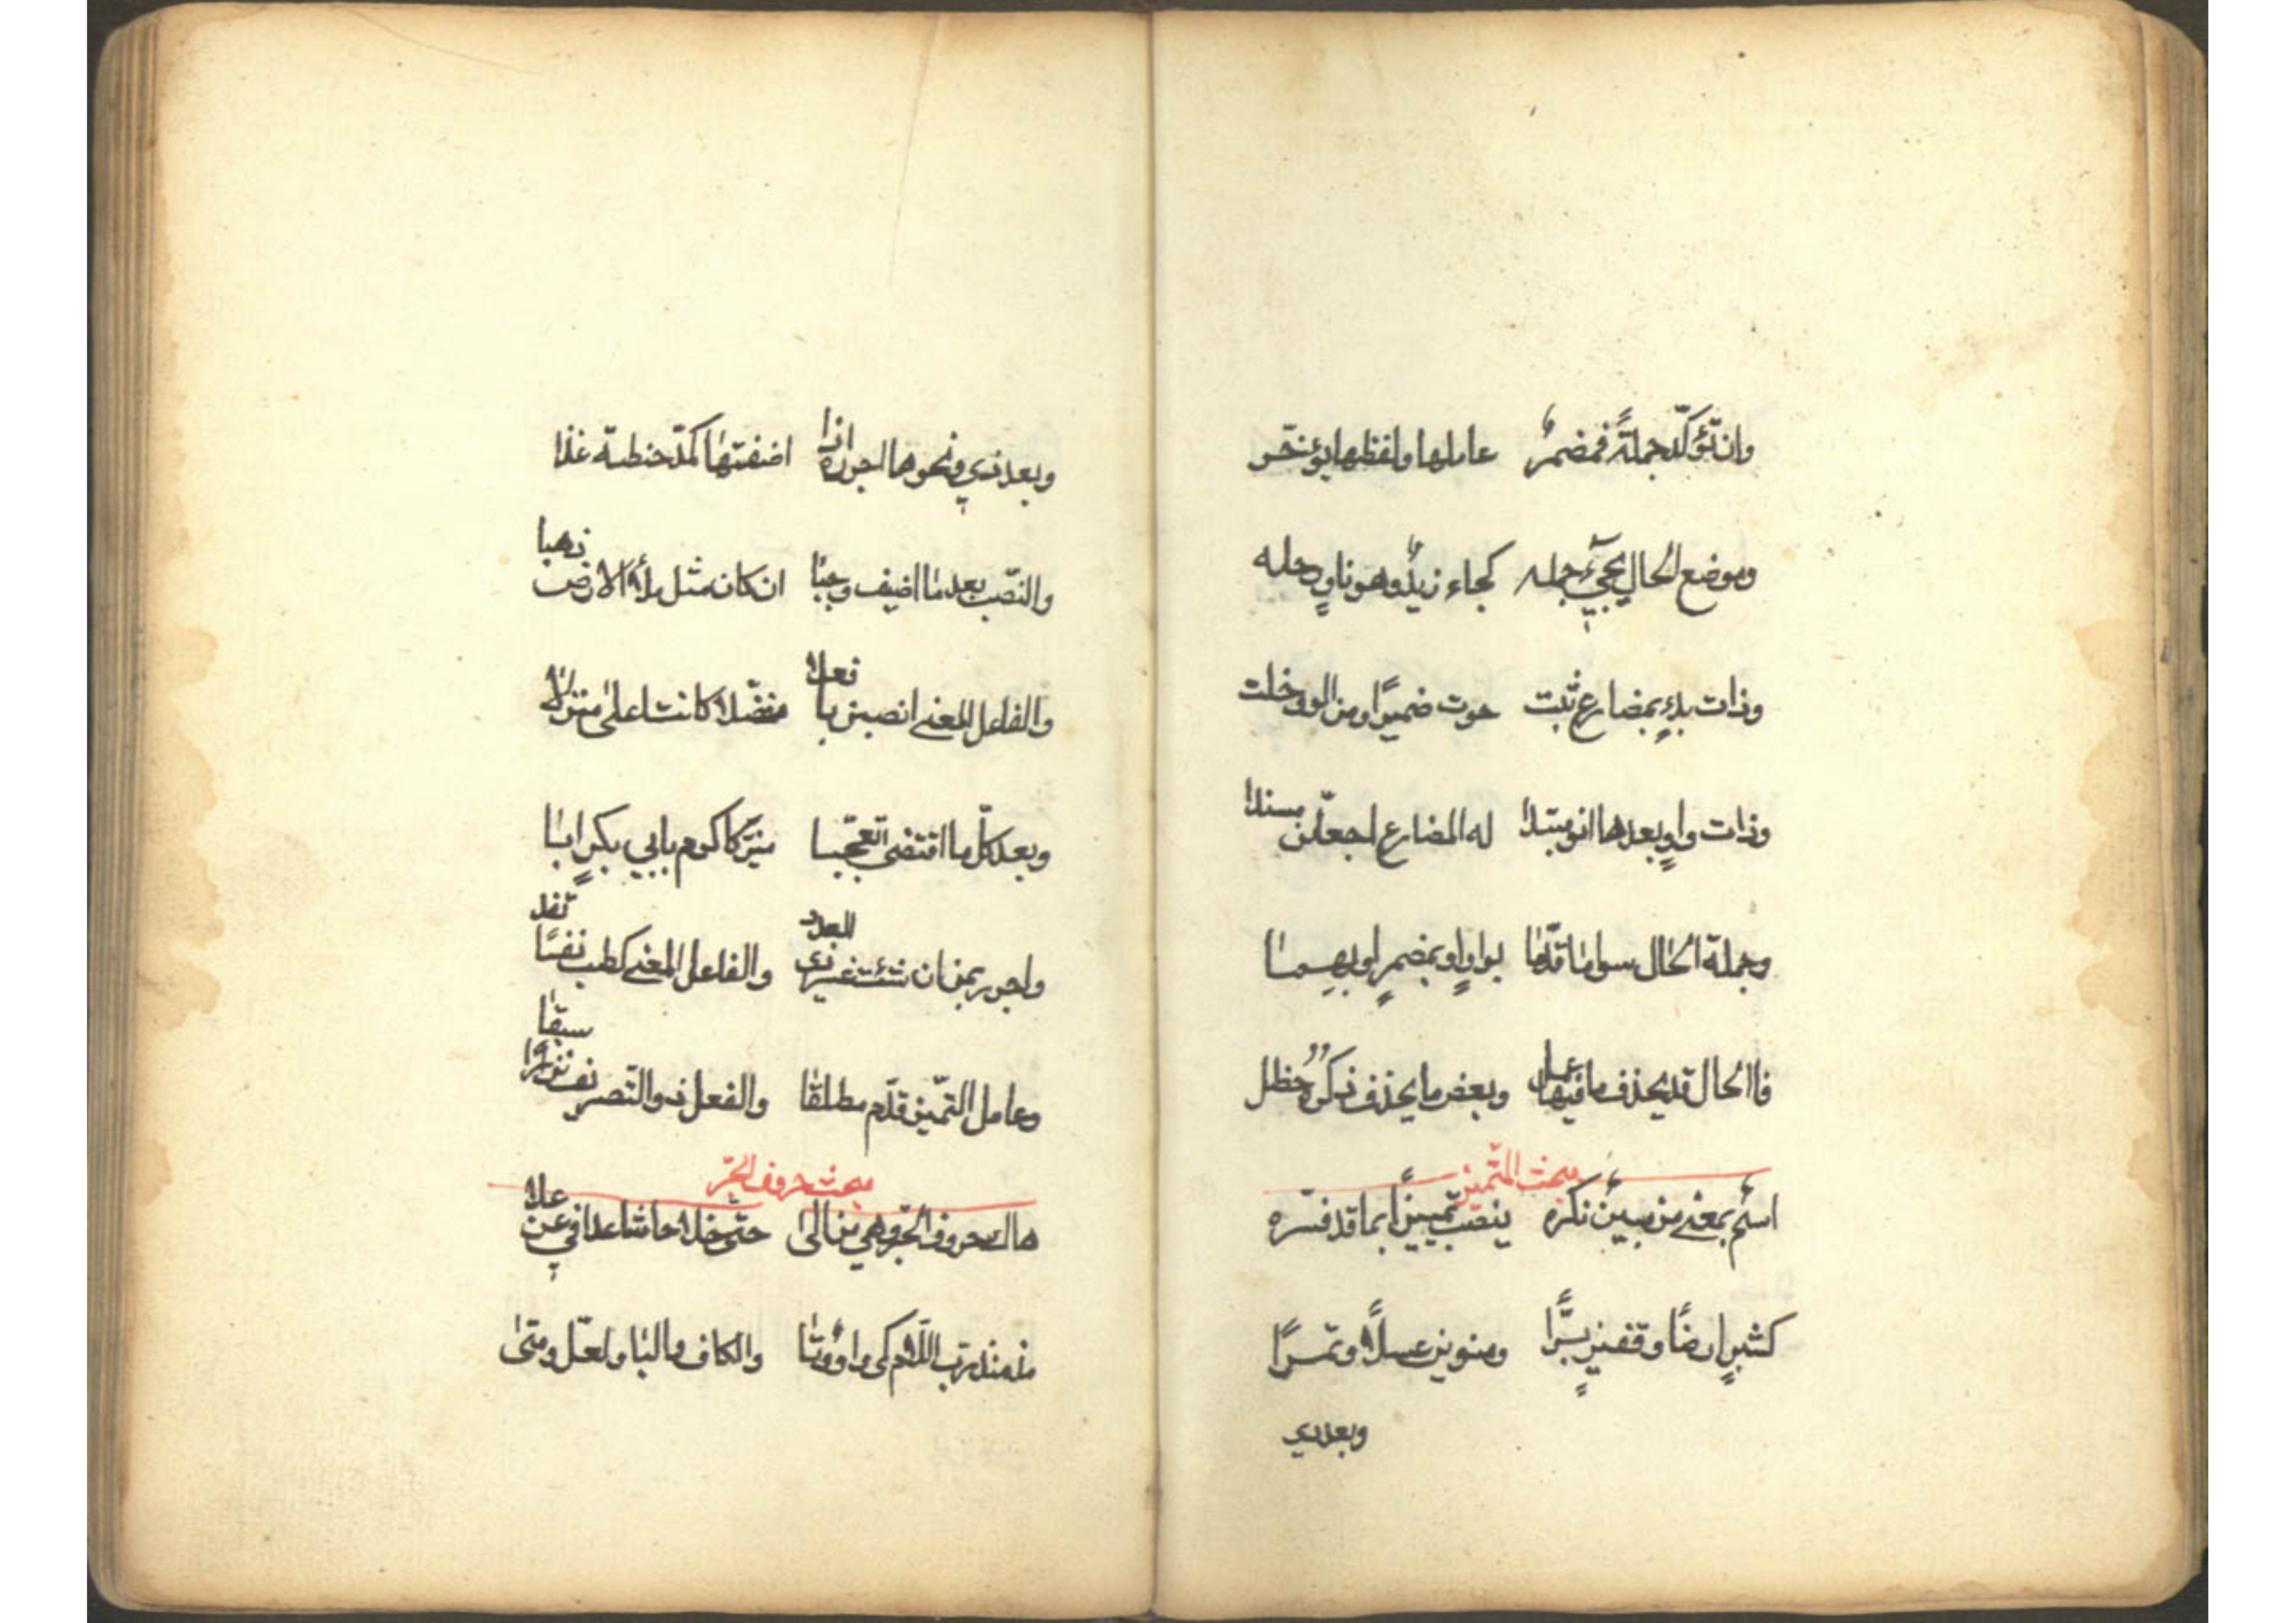 وان تؤكّد جملةً فمضمرٌ عاملها ولفظها يؤخّر
وموضع الحال يجيء جمله كجاء زيدٌ وهو ناوٍ رحله
وذات بدءٍ بمضارعٍ ثبت حوت ضميرًا ومن الواو خلت
وذات واوٍ بعدها انو مبتدا له المضارع اجعلنّ مسندا
وجملة الحال سوا ما قدّما بواوٍ او بمضمرٍ او بهما
فاالحال قد يحذف ما فيها عمل وبعض ما يحذف ذكره حظل
مبحث التّمييز
اسمٌ بمعنى من مبينٌ نكره ينصب تمييزًا بما قد فسّره
كشبرٍ ارضًا وقفيزٍ برًّا ومنوين عسلًا وتمرًا
وبعد ذي
وبعد ذي ونحوها اجرره اذا اضفتها كمدّ حنطة غذا
والنّصب بعد ما اضيف وجبا ان كان مثل ملأ الارض ذهبا
والفاعل المعنى انصبن بافعلا مفضّلا كانت اعلى منزلا
وبعد كلّ ما اقتضى تعجّبا ميّز كاكرم بابي بكرٍ ابا
واجرر بمن ان شئت غير ذي العدد والفاعل المعنى كطب نفسًا تفد
وعامل التّمييز قدّم مطلقا والفعل ذو التّصريف نزرا سبقا
مبحث حروف الجرّ
هاك حروف الجرّ وهي من الى حتّى خلا حاشا عدا في عن على
مذ منذ ربّ اللّام كي واوٌ وتا والكاف والبا ولعلّ ومتى